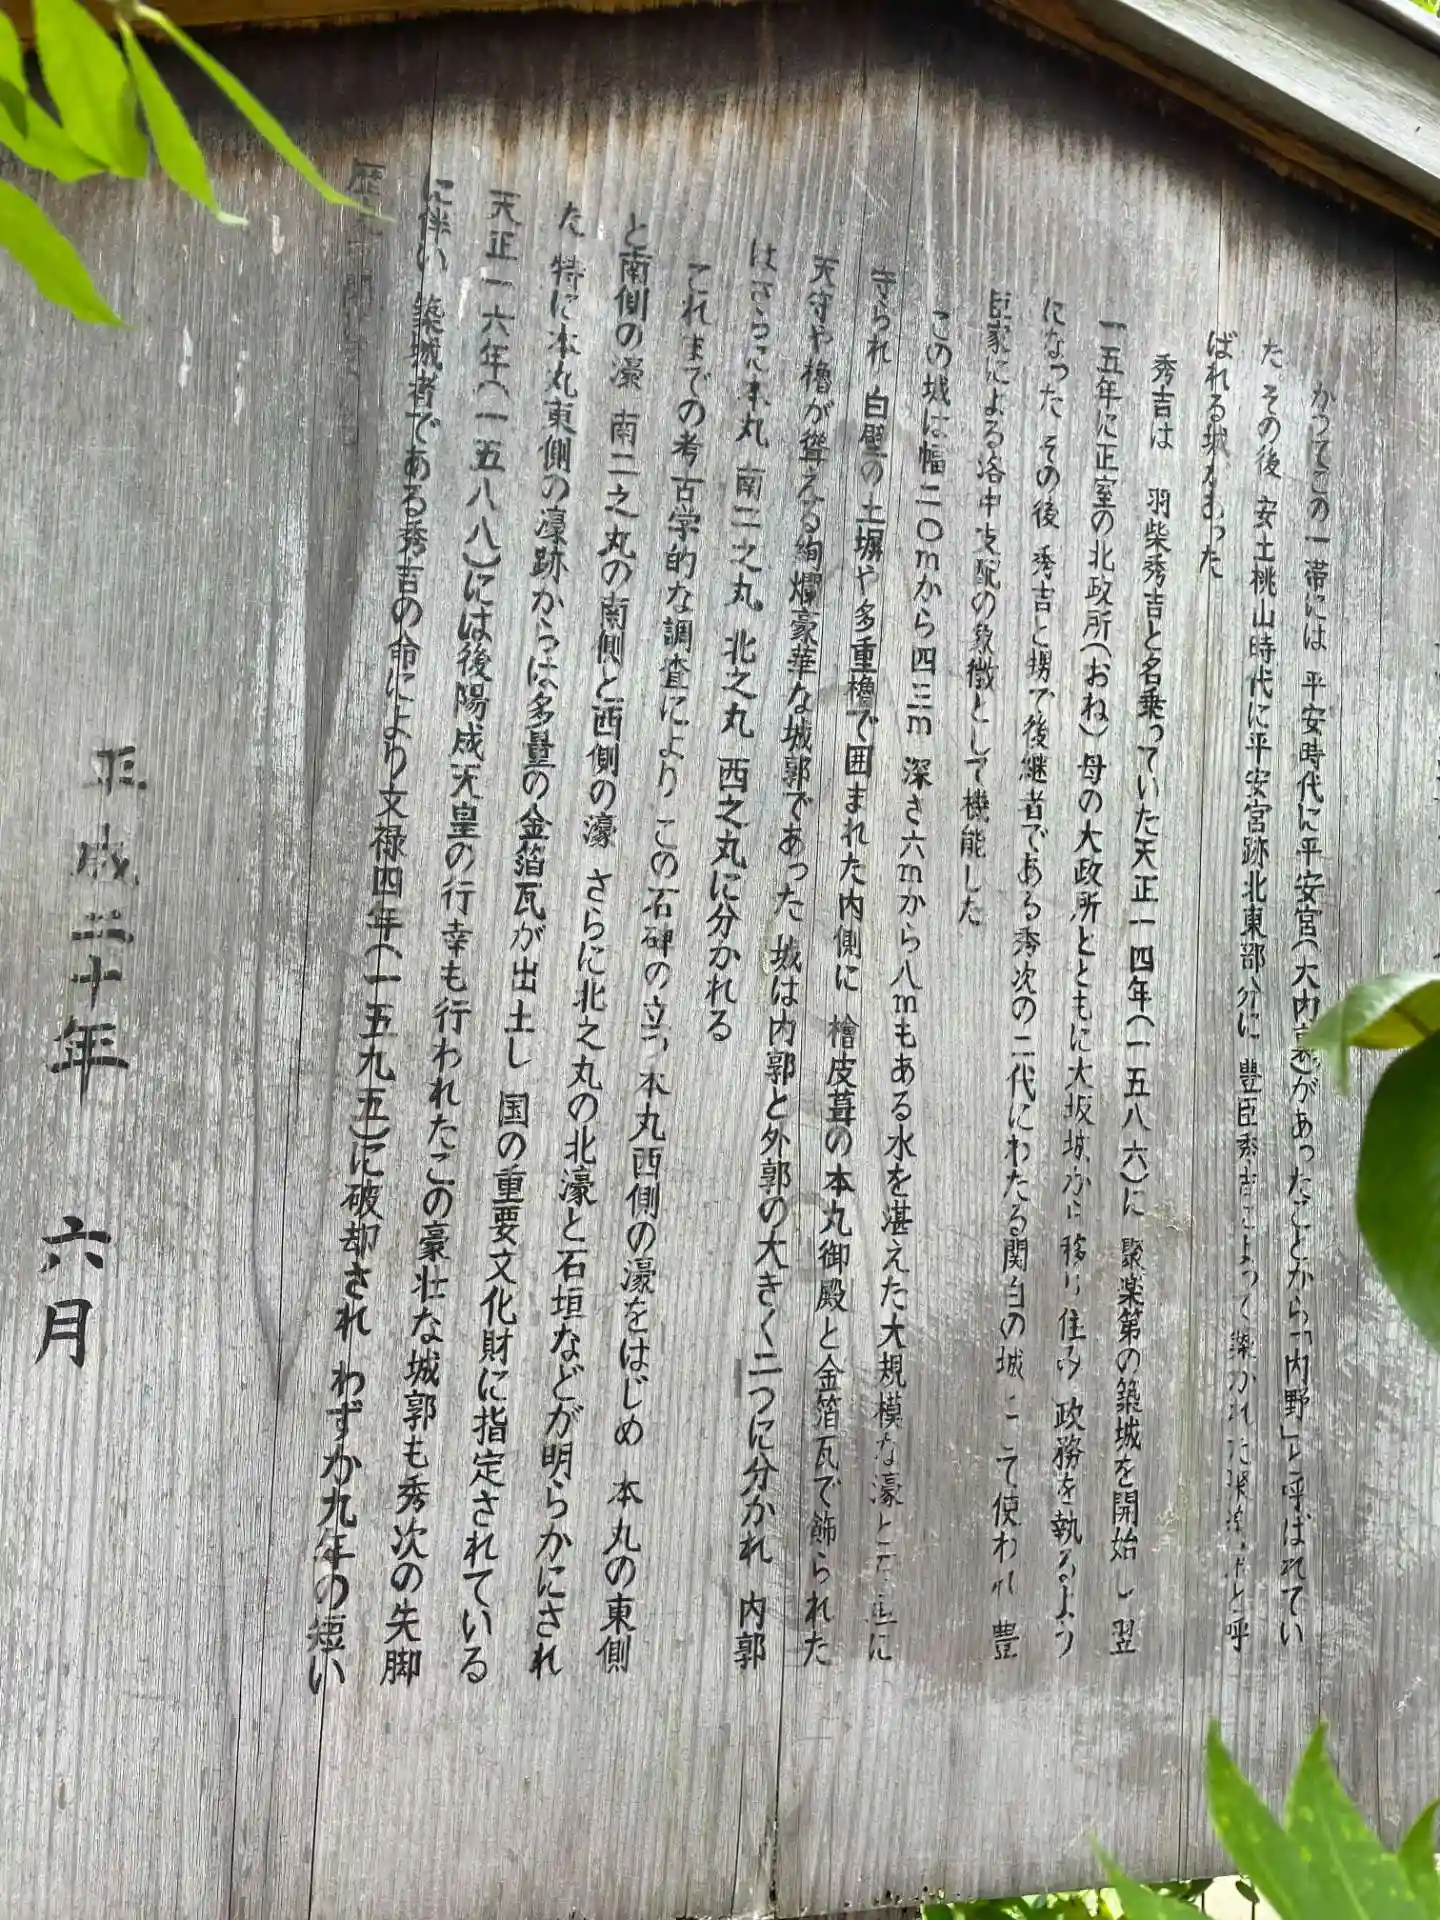 かつてこの一帯には 平安時代に平安宮(大内裏)があったことから「内野」と呼ばれてい
た その後 安土桃山時代に平安宮跡北東部分に 豊臣秀吉によって築かれた聚楽第と呼
ばれる城があった
秀吉は 羽柴秀吉と名乗っていた天正一四年(一五八六)に 聚楽第の築城を開始し 翌
一五年に正室の北政所(おね) 母の大政所とともに大坂城から移り住み 政務を執るよう
になった その後 秀吉と甥で後継者である秀次の二代にわたる関白の城として使われ 豊
臣家による洛中支配の象徴として機能した
この城は幅二〇mから四三m 深さ六mから八mもある水を湛えた大規模な濠と石垣に
守られ 白壁の土塀や多重櫓で囲まれた内側に 檜皮葺の本丸御殿と金箔瓦で飾られた
天守や櫓が聳える絢爛豪華な城郭であった 城は内郭と外郭の大きく二つに分かれ 内郭
はさらに本丸 南二之丸 北之丸 西之丸に分かれる
これまでの考古学的な調査により この石碑の立つ本丸西側の濠をはじめ 本丸の東側
と南側の濠 南二之丸の南側と西側の濠 さらに北之丸の北濠と石垣などが明らかにされ
た 特に本丸東側の濠跡からは多量の金箔瓦が出土し 国の重要文化財に指定されている
天正一六年(一五八八)には後陽成天皇の行幸も行われたこの豪壮な城郭も秀次の失脚
に伴い 築城者である秀吉の命により文禄四年(一五九五)に破却され わずか九年の短い
歴
平成三十年 六月